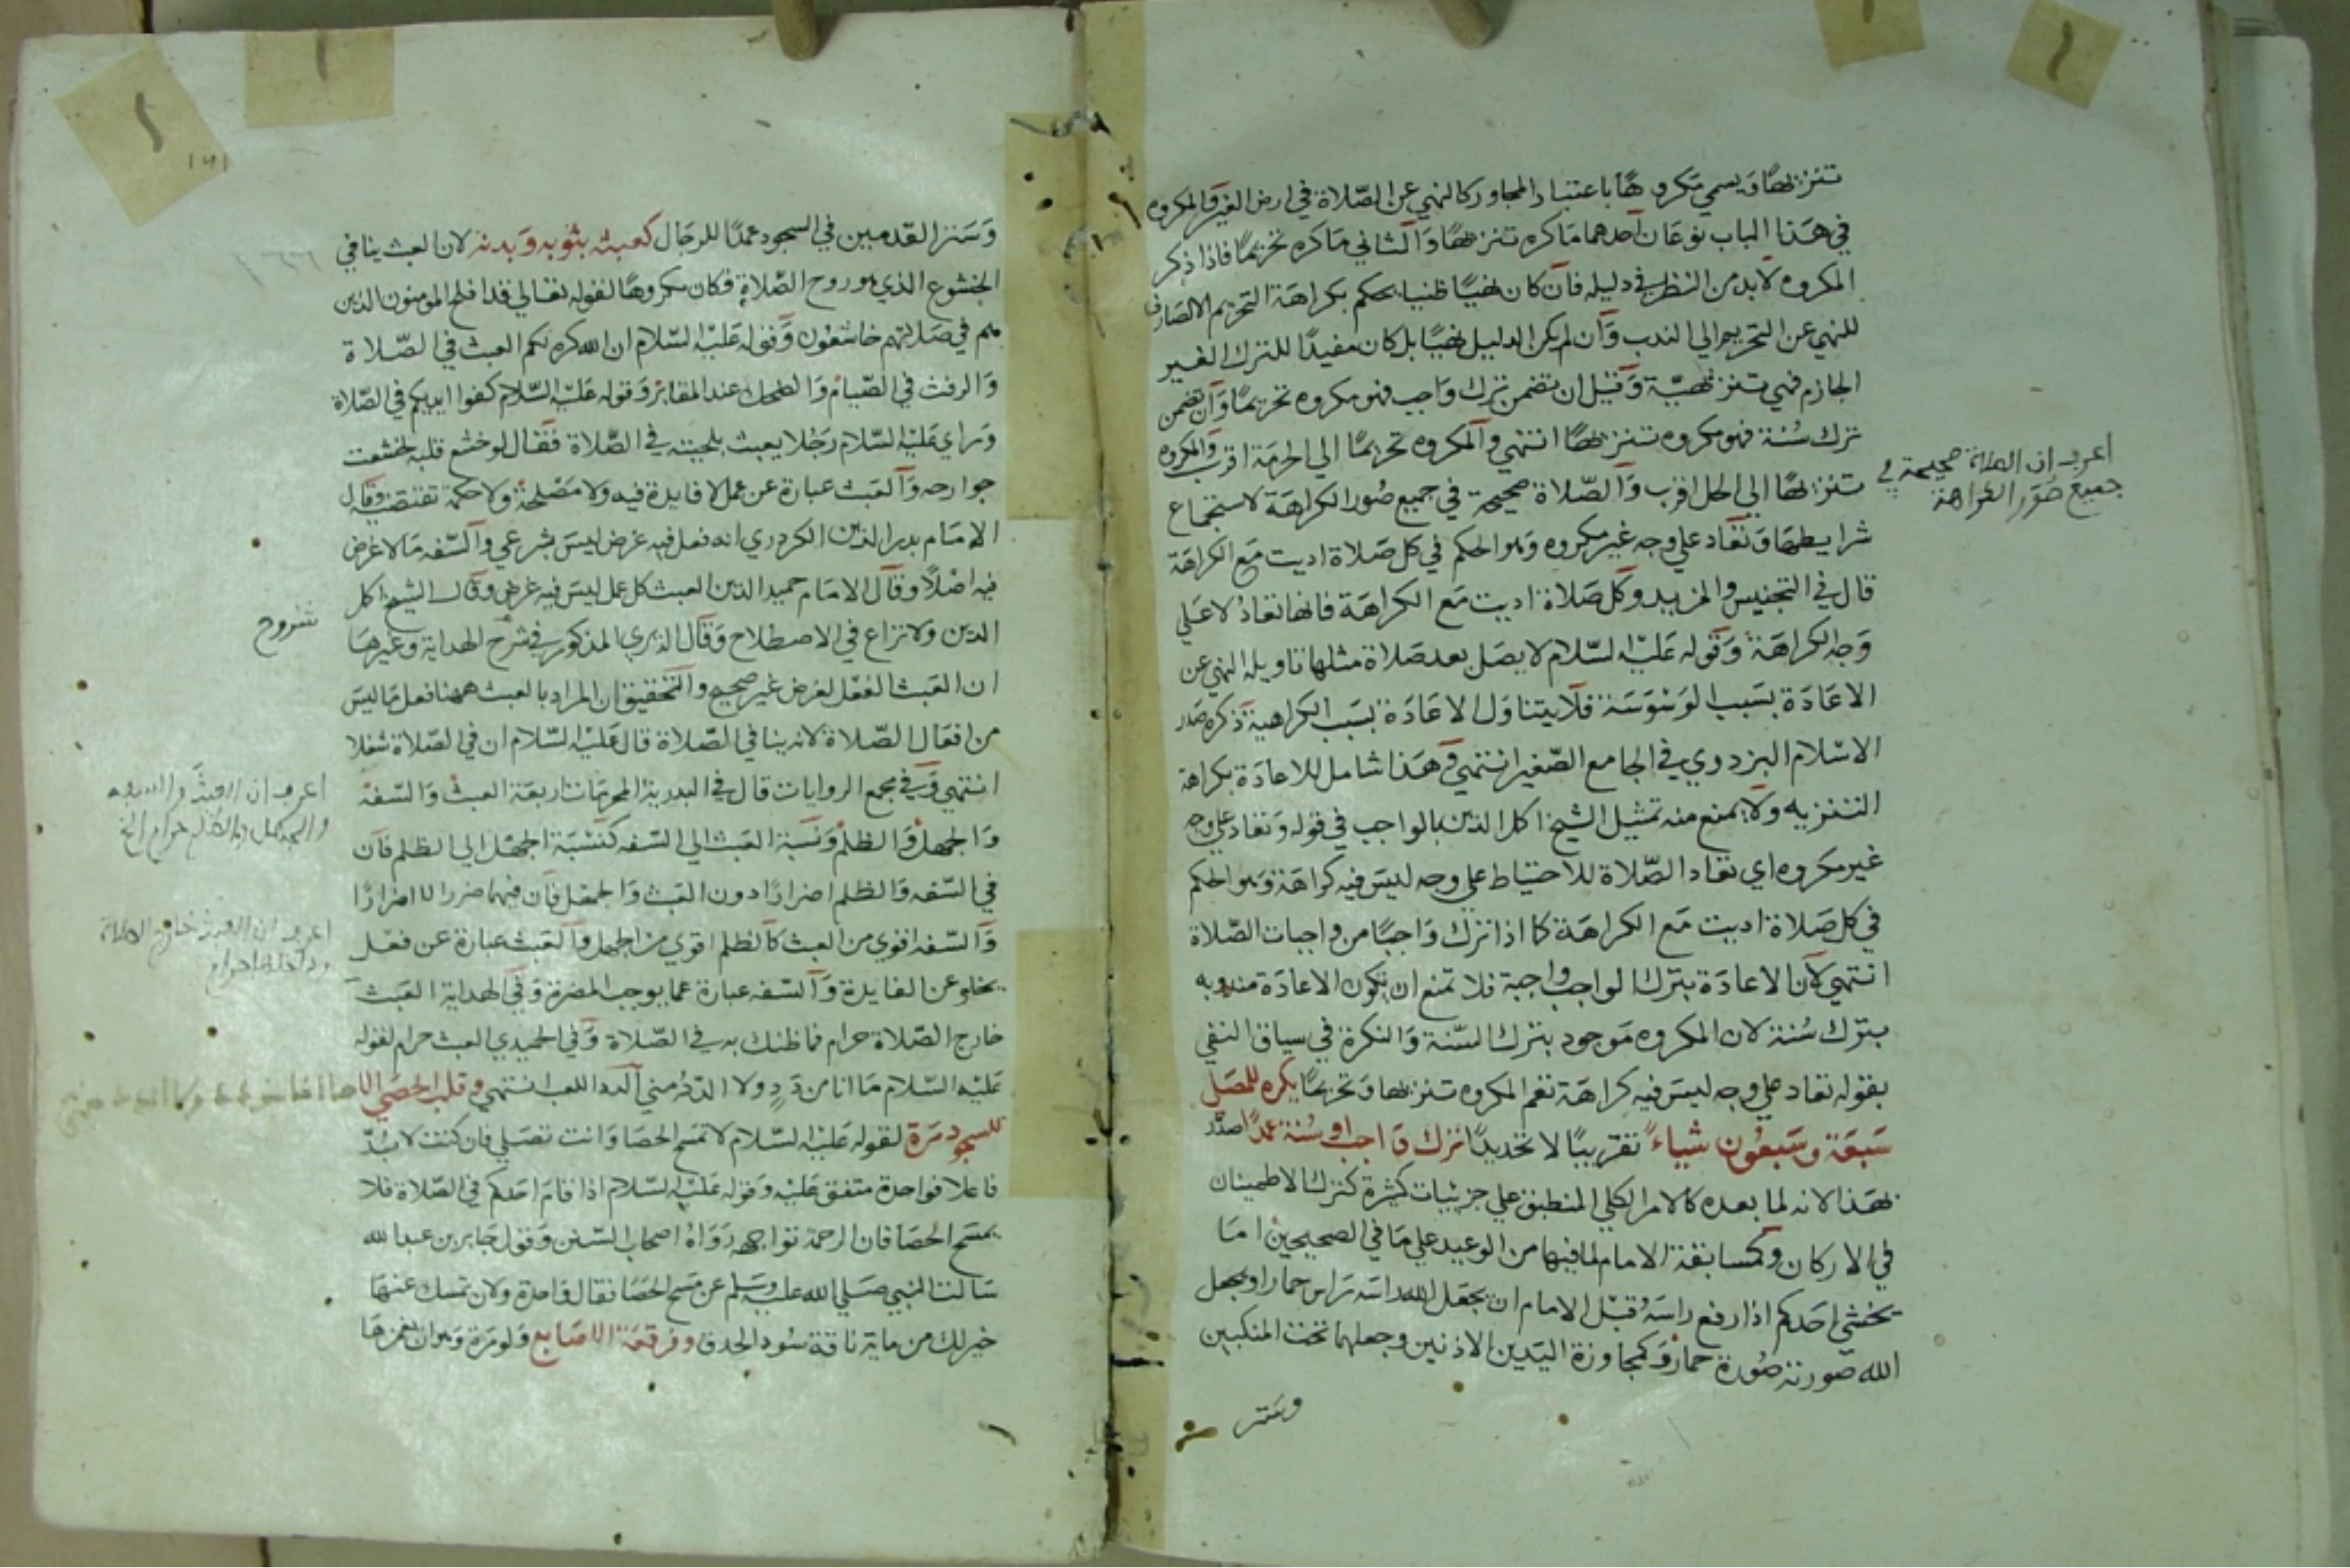 تنزيها ويسمي مكروها باعتبار المجاور كالنهي عن الصلاة في ارض الغير والمكروه
في هذا الباب نوعان احدهما ما كره تنزيها والثاني ما كره تحريما فاذا ذكر
المكروه لابد من النظر في دليله فان كان نهيا ظنيا يحكم بكراهة التحريم الا لصارف
للنهي عن التحريم الي الندب وان لم يكن الدليل نهيا بل كان مفيدا للترك الغير
الجازم فهي تنزيهية وقيل ان تضمن ترك واجب فهو مكروه تحريما وان تضمن
ترك سنة فهو مكروه تنزيها انتهي والمكروه تحريما الي الحرمة اقرب والمكروه
تنزيها الي الحل اقرب والصلاة صحيحة في جميع صور الكراهة لاستجماع
شرايطها وتعاد علي وجه غير مكروه وهو الحكم في كل صلاة اديت مع الكراهة
قال في التجنيس والمزيد وكل صلاة اديت مع الكراهة فانها تعاد لا علي
وجه الكراهة وقوله عليه السلام لا يصل بعد صلاة مثلها تاويله النهي عن
الاعادة بسبب الوسوسة فلا يتناول الاعادة بسبب الكراهية ذكره صدر
الاسلام البزدوي في الجامع الصغير انتهي وهذا شامل للاعادة بكراهة
التنزيه ولا يمنع منه تمثيل الشيخ اكمل الدين بالواجب في قوله وتعاد علي وجه
غير مكروه اي تعاد الصلاة للاحتياط علي وجه ليس فيه كراهة وهو الحكم
في كل صلاة اديت مع الكراهة كما اذا ترك واجبا من واجبات الصلاة
انتهي لان الاعادة بترك الواجب واجبة فلا تمنع ان تكون الاعادة مندوبه
بترك سنة لان المكروه موجود بترك السنة والنكرة في سياق النفي
بقوله تعاد علي وجه ليس فيه كراهة تعم المكروه تنزيها وتحريما يكره للمصلي
سبعة وسبعون شياء تقريبا لا تحديدا ترك واجب او سنة عمدا صدر
بهذا لانه لما بعده كالامر الكلي المنطبق علي جزئيات كثيرة كترك الاطمينان
في الاركان وكمسابقة الامام لما فيها من الوعيد علي ما في الصحيحين اما
يخشي احدكم اذا رفع راسه قبل الامام ان يجعل الله راسه راس حمار او يجعل
الله صورته صورة حمار وكمجاوزة اليدين الاذنين وجعلهما تحت المنكبين
وستر
اعرف ان الصلاة صحيحة في
جميع صور الكراهة
وستر القدمين في السجود عمدا للرجال كعبثه بثوبه وبدنه لان العبث ينافي
الخشوع الذي هو روح الصلاة فكان مكروها لقوله تعالي قد افلح المومنون الذين
هم في صلاتهم خاشعون وقوله عليه السلام ان الله كره لكم العبث في الصلاة
والرفث في الصيام والضحك عند المقابر وقوله عليه السلام كفوا ايديكم في الصلاة
وراي عليه السلام رجلا يعبث بلحيته في الصلاة فقال لو خشع قلبه لخشعت
جوارحه والعبث عبارة عن عمل لا فايدة فيه ولا مصلحة ولا حكمة تقتضيه وقال
الامام بدر الدين الكردري انه فعل فيه غرض ليس بشرعي والسفه ما لا غرض
فيه اصلا وقال الامام حميد الدين العبث كل عمل ليس فيه غرض وقال الشيخ اكمل
الدين ولا نزاع في الاصطلاح وقال الذي المذكور في شرح الهداية وغيرها
ان العبث الفعل لغرض غير صحيح والتحقيق ان المراد بالعبث ههنا فعل ما ليس
من افعال الصلاة لانه ينافي الصلاة قال عليه السلام ان في الصلاة شغلا
انتهي وفي مجمع الروايات قال في البدرية المحرمات اربعة العبث والسفه
والجهل والظلم ونسبة العبث الي السفه كنسبة الجهل الي الظلم فان
في السفه والظلم اضرارا دون العبث والجهل فان فيهما ضررا لا اضرارا
والسفه اقوي من العبث كالظلم اقوي من الجهل والعبث عبارة عن فعل
يخلو عن الفايدة والسفه عبارة عما يوجب المضرة وفي الهداية العبث
خارج الصلاة حرام فما ظنك به في الصلاة وفي الحميدي العبث حرام لقوله
عليه السلام ما انا من دد ولا الدد مني الدد اللعب انتهي وقلب الحصي الا
للسجود مرة لقوله عليه السلام لا تمسح الحصا وانت تصلي فان كنت لا بد
فاعلا فواحدة متفق عليه وقوله عليه السلام اذا قام احدكم في الصلاة فلا
يمسح الحصا فان الرحمة تواجهه رواه اصحاب السنن وقول جابر بن عبد الله
سالت النبي صلي الله عليه وسلم عن مسح الحصا فقال واحدة ولان تمسك عنها
خير لك من ماية ناقة سود الحدق وفرقعة الاصابع ولو مرة وهو ان يغمزها
شروح
اعرف ان العبث والسفه
والجهل والظلم حرام الخ
اعرف ان العبث خارج الصلاة
وداخلها حرام